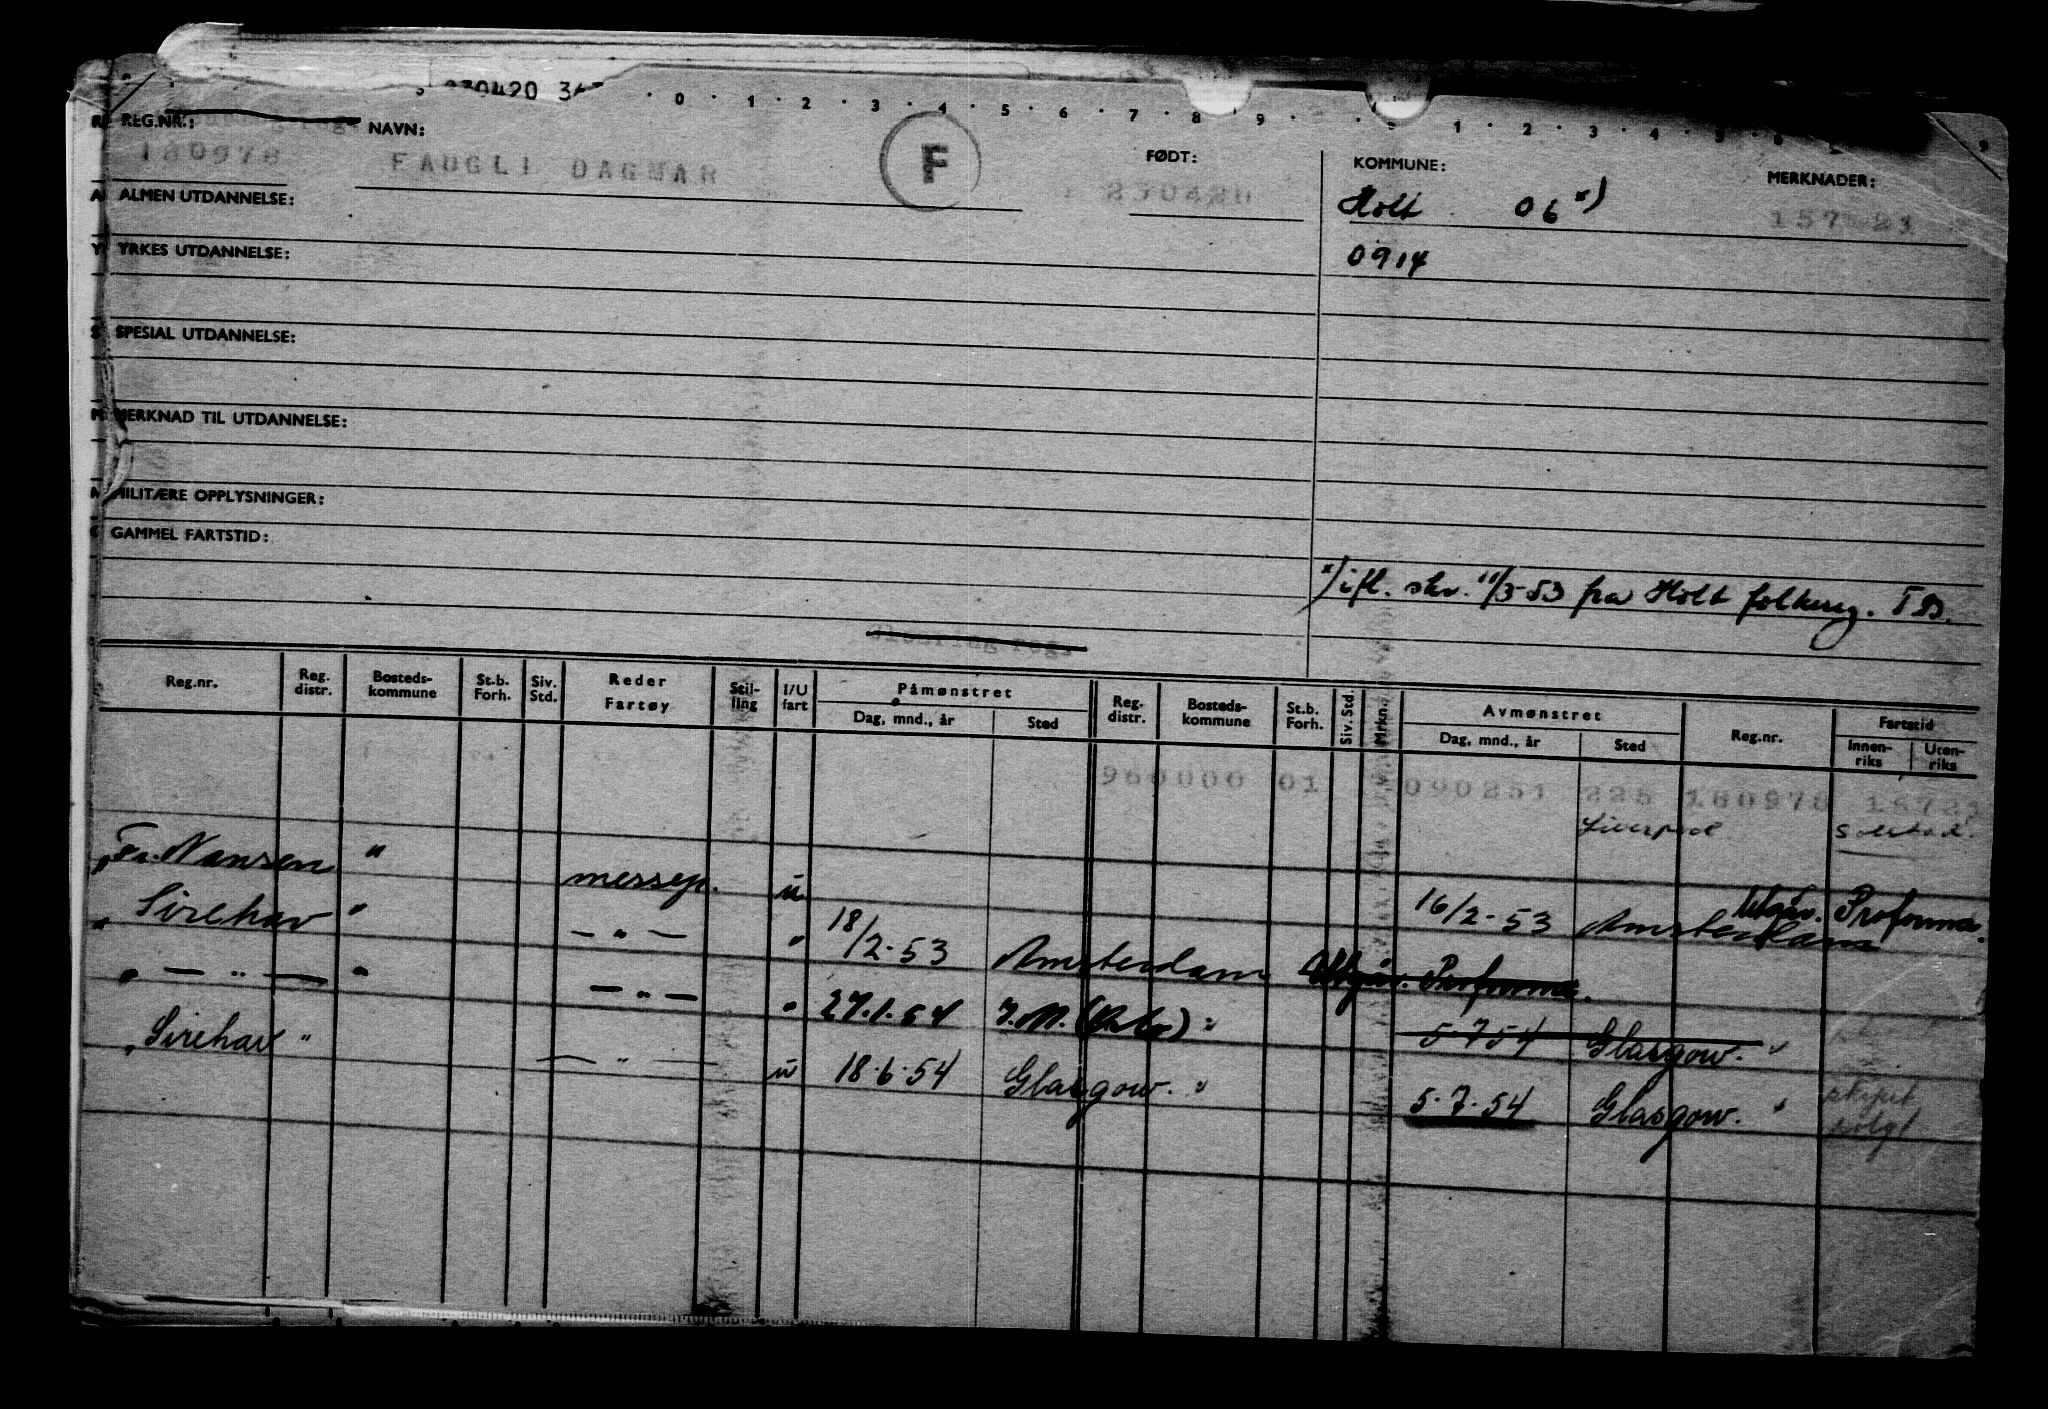 230420
0 · 1 · 2 · 3 · 4 · 5 · 6 · 7 · 8 · 9 · 1 · 2 · 3 · 4 · 5
REG.NR.: NAVN: FØDT: KOMMUNE: MERKNADER:
180978 FAUGLI DAGMAR F 230420 Holt 06 x) 157 21
ALMEN UTDANNELSE:
0914
YRKES UTDANNELSE:
SPESIAL UTDANNELSE:
MERKNAD TIL UTDANNELSE:
MILITÆRE OPPLYSNINGER:
GAMMEL FARTSTID:
x) ifl. skr. 11/3-53 fra Holt folkereg. TB.
Reg.nr. Reg. distr. Bosteds-kommune St.b. Forh. Siv. Std. Reder Fartøy Stil-ling I/U fart Påmønstret Dag, mnd., år Sted Reg. distr. Bosteds-kommune St.b. Forh. Siv. Std. Mrkn. Avmønstret Dag, mnd., år Sted Reg.nr. Fartstid Innen-riks Uten-riks
960000 01 090251 225 180978 15721
Liverpool
„ Fr. Nansen " messep. u 16/2-53 Amsterdam Utgår. Proforma.
„ Sirehav " — " — " 18/2-53 Amsterdam Utgår. Proforma.
„ — " — " — " — " 27.1.54 " 5.7.54 Glasgow. "
„ Sirehav " — " — u 18.6.54 Glasgow. " 5.7.54 Glasgow. " skipet solgt